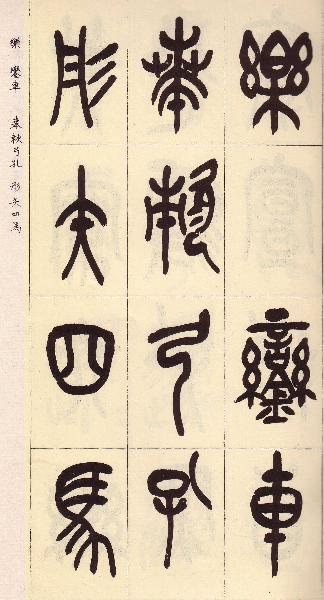 樂鑾車
𠦪欶弓孔
彤矢四馬
樂 鑾車 𠦪欶弓孔 彤矢四馬